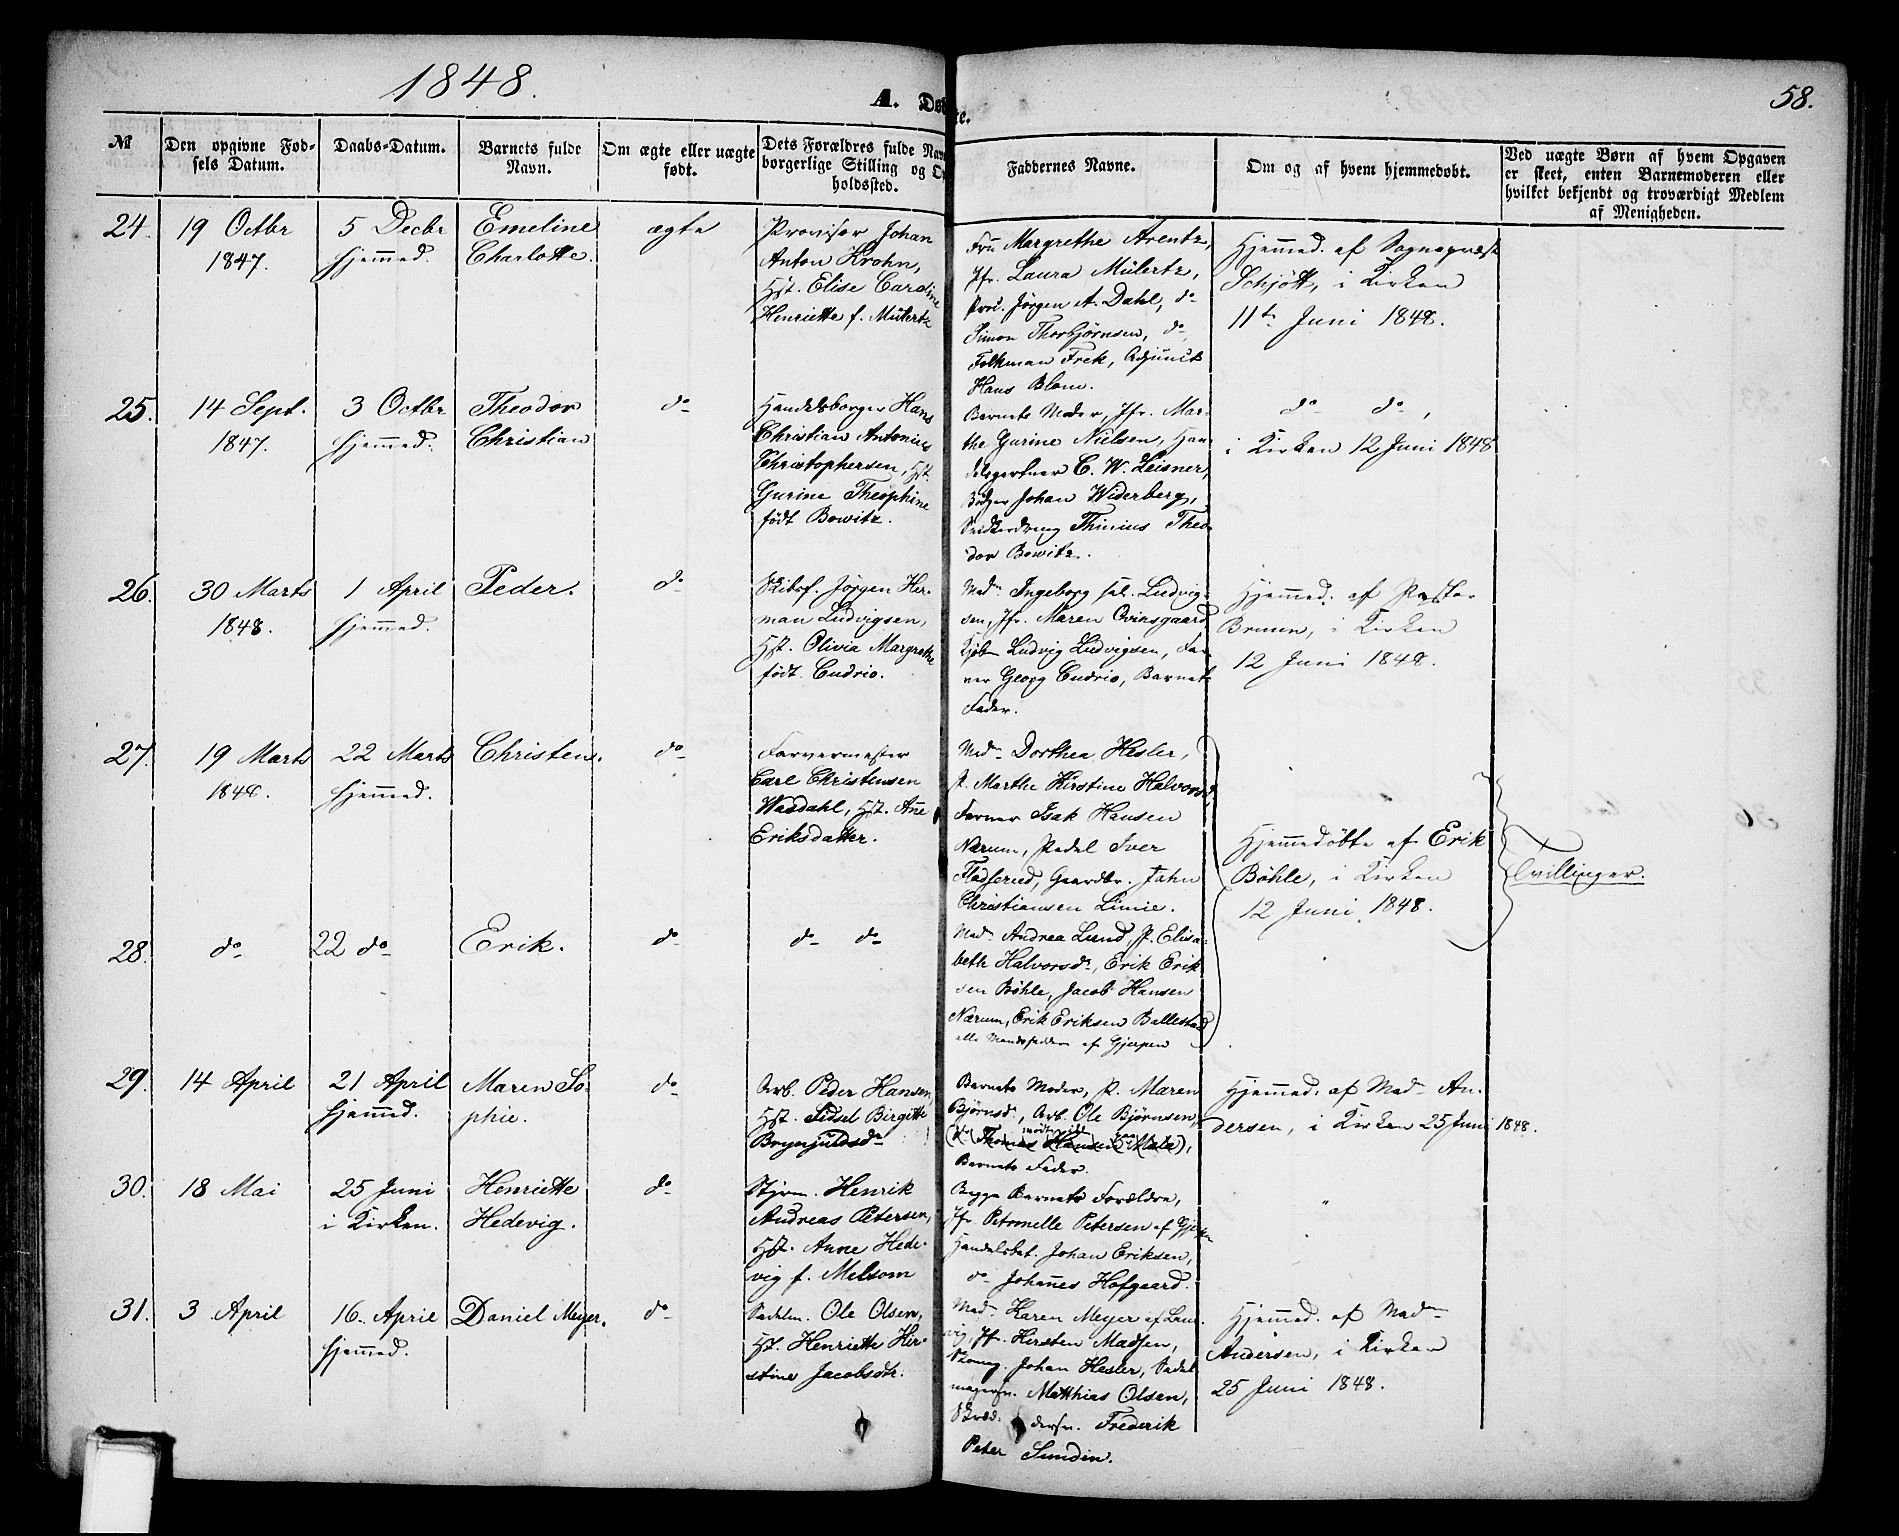 1848.
58.
A. Døbte.
№
Den opgivne Fød-
sels Datum.
Daabs-Datum.
Barnets fulde
Navn.
Om ægte eller uægte
født.
Dets Forældres fulde Nav
borgerlige Stilling og O
holdssted.
Faddernes Navne.
Om og af hvem hjemmedøbt.
Ved uægte Børn af hvem Opgaven
er skeet, enten Barnemoderen eller
hvilket bekjendt og troværdigt Medlem
af Menigheden.
24.
19 Octbr
1847.
5 Decbr
hjemmed.
Emeline
Charlotte.
ægte
Provisor Johan
Anton Krohn,
Hst. Elise Caroline
Henriette f. Mülertz
Fru Margrethe Arentz,
Jfr. Laura Mülertz,
Jørgen A. Dahl, do
Simon Thorbjørnsen, do
Folkman Frek, Adjunct
Hans Blom.
Hjemmed. af Sognepræst
Schjøtt, i Kirken
11te Juni 1848.
25.
14 Sept.
1847.
3 Octbr
hjemmed.
Theodor
Christian
do
Handelsborger Hans
Christian Antonius
Christophersen, Hst.
Gurine Theophine
født Bowitz.
Barnets Moder, Jfr. Mar-
the Gurine Nielsen, Han-
delsgartner C. W. Leisner,
Johan Widerberg,
Thinius Theo-
dor Bowitz.
do do,
i Kirken 12 Juni 1848
26.
30 Marts
1848.
1 April
hjemmed.
Peder.
do
Skibsf. Jørgen Her-
man Ludvigsen,
Hst. Olivia Margrethe
født Cudrio.
Mad. Ingeborg sal. Ludvig-
sen, Jfr. Maren Qvinsgaard
Kjøbm Ludvig Ludvigsen, Far-
ver Georg Cudrio, Barnets
Fader.
Hjemmed. af Pastor
Bruun, i Kirken
12 Juni 1848.
27.
19 Marts
1848.
22 Marts
hjemmed.
Christen.
do
Farvermester
Carl Christensen
Wasdahl, Hst. Ane
Eriksdatter.
Mad. Dorthea Hesler,
P. Marthe Kirstine Halvorsd.
Farver Isak Hansen
Nærum, Pedel Iver
Fladserud, Gaardbr. John
Christiansen Limie.
Hjemmedøbte af Erik
Bøhle, i Kirken
12 Juni 1848.
Tvillinger.
28.
do
22 do
Erik.
do
do do
Mad. Andrea Lund, P. Elisa-
beth Halvorsd., Erik Erik
sen Bøhle, Jacob Hansen
Nærum, Erik Eriksen Ballestad
alle Mandsfaddere af Gjerpen
29.
14 April
21 April
hjemmed.
Maren So-
phie.
do
Arb. Peder Hansen,
Hst. Sidsel Birgitte
Brynjuldsdr
Barnets Moder, P. Maren
Bjørnsd., Arb. Ole Bjørnsen,
(do Thomas Hansen Mæla),
Barnets Fader.
Hjemmed. af Mad. An-
dersen, i Kirken 25 Juni 1848.
30.
18 Mai
25 Juni
i Kirken.
Henriette
Hedevig.
do
Styrm. Henrik
Andreas Petersen,
Hst. Anne Hede-
vig f. Melsom
Begge Barnets Forældre,
Jfr Petronelle Petersen af Gjerpen
Handelsbet. Johan Eriksen,
do Johannes Hofgaard.
"
31.
3 April
16 April
hjemmed.
Daniel Meyer.
do
Sadelm. Ole Olsen,
Hst. Henriette Kir-
stine Jacobsdtr.
Mad. Karen Meyer af Laur-
vig, Jfr. Kirsten Madsen,
Johan Hesler, Sadel
magersv. Matthias Olsen,
Skræd dersv. Frederik
Peter Sundin.
Hjemmed. af Madm
Andersen, i Kirken
25 Juni 1848.